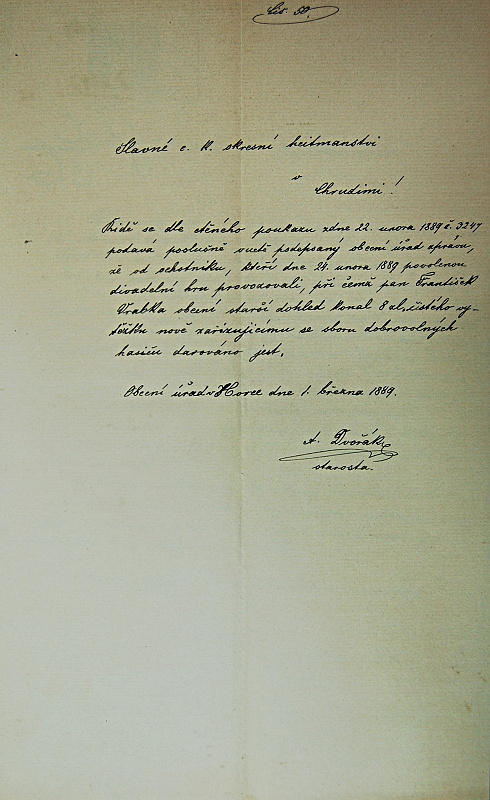 Čís. 50.
Slavné c. k. okresní heitmanství
v
Chrudimi!
Řídě se dle ctěného poukazu zdne 22. února 1889 č. 3247
podává poslušně vuctě podepsaný obecní úřad zprávu,
že od ochotníku, kteří dne 24. února 1889 povolenou
divadelní hru provozovali, při čemž pan František
Vrabka obecní starší dohled konal 8 zl. čistého vý-
těžku nově zařizujícímu se sboru dobrovolných
hasičů darováno jest.
Obecní úřad v Horce dne 1. března 1889.
A. Dvořák
starosta.